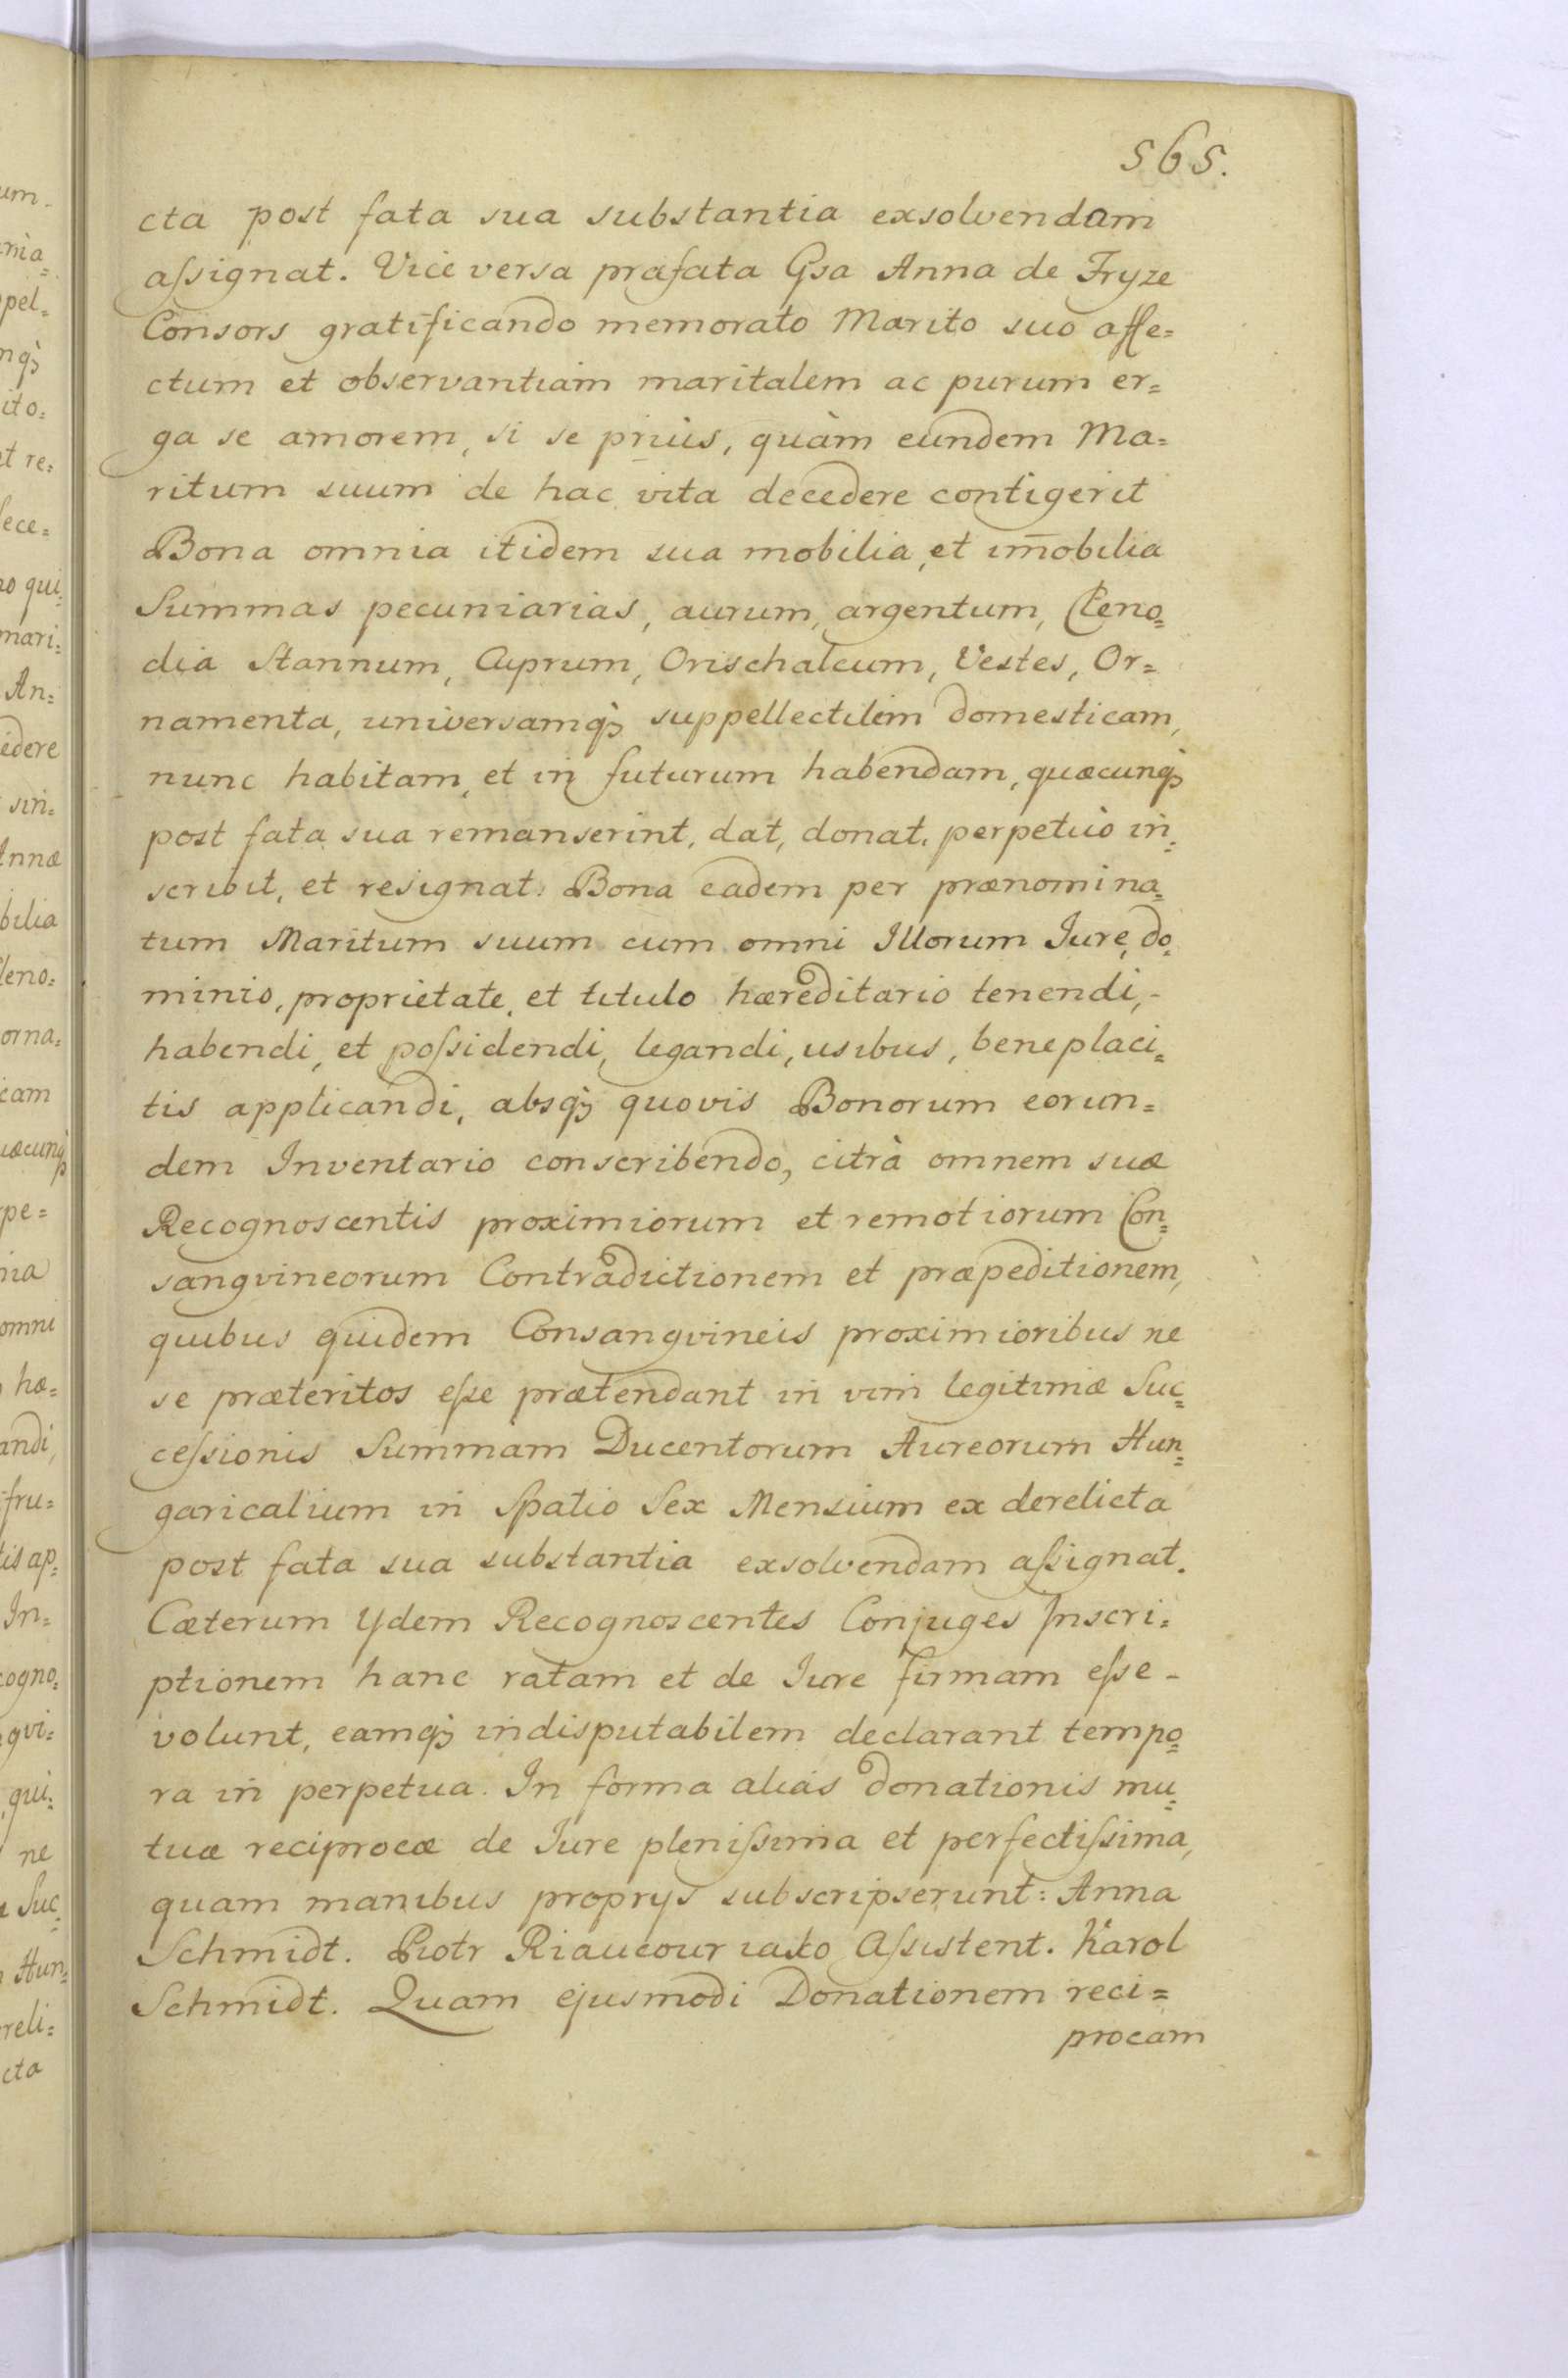 565.
cta post fata sua substantia exsolvendam
aſsignat. Vice versa præfata Gsa Anna de Fryze
Consors gratificando memorato Marito suo affe=
ctum et observantiam maritalem ac purum er=
ga se amorem, si se priùs, quàm eundem Ma=
ritum suum de hac vita decedere contigerit
Bona omnia itidem sua mobilia, et im̄obilia
Summas pecuniarias, aurum, argentum, Cleno=
dia Stannum, Cuprum, Orischalcum, Vestes, Or=
namenta, universamq̀ꝫ suppellectilem domesticam,
nunc habitam, et in futurum habendam, quæcunq̀ꝫ
post fata sua remanserint, dat, donat, perpetuò in=
scribit, et resignat. Bona eadem per prænomina=
tum Maritum suum cum omni Illorum Iure, do=
minio, proprietate, et titulo hæreditario tenendi,-
habendi, et poſsidendi, legandi, usibus, beneplaci=
tis applicandi, absq̀ꝫ quovis Bonorum eorun=
dem Inventario conscribendo, citrà omnem suæ
Recognoscentis proximiorum et remotiorum Con=
sangvineorum Contradictionem et præpeditionem,
quibus quidem Consangvineis proximioribus ne
se præteritos eſse prætendant in vim legitimæ Suc=
ceſsionis Summam Ducentorum Aureorum Hun=
garicalium in Spatio Sex Mensium ex derelicta
post fata sua substantia exsolvendam aſsignat.
Cæterum Ydem Recognoscentes Conjuges Inscri=
ptionem hanc ratam et de Iure firmam eſse-
volunt, eamq̀ꝫ indisputabilem declarant tempo=
ra in perpetua. In forma aliàs donationis mu=
tuæ reciprocæ de Iure pleniſsima et perfectiſsima,
quam manibus proprys subscripserunt: Anna
Schmidt. Piotr Riaucour iako Aſsistent. Karol
Schmidt. Quam ejusmodi Donationem reci=
procam